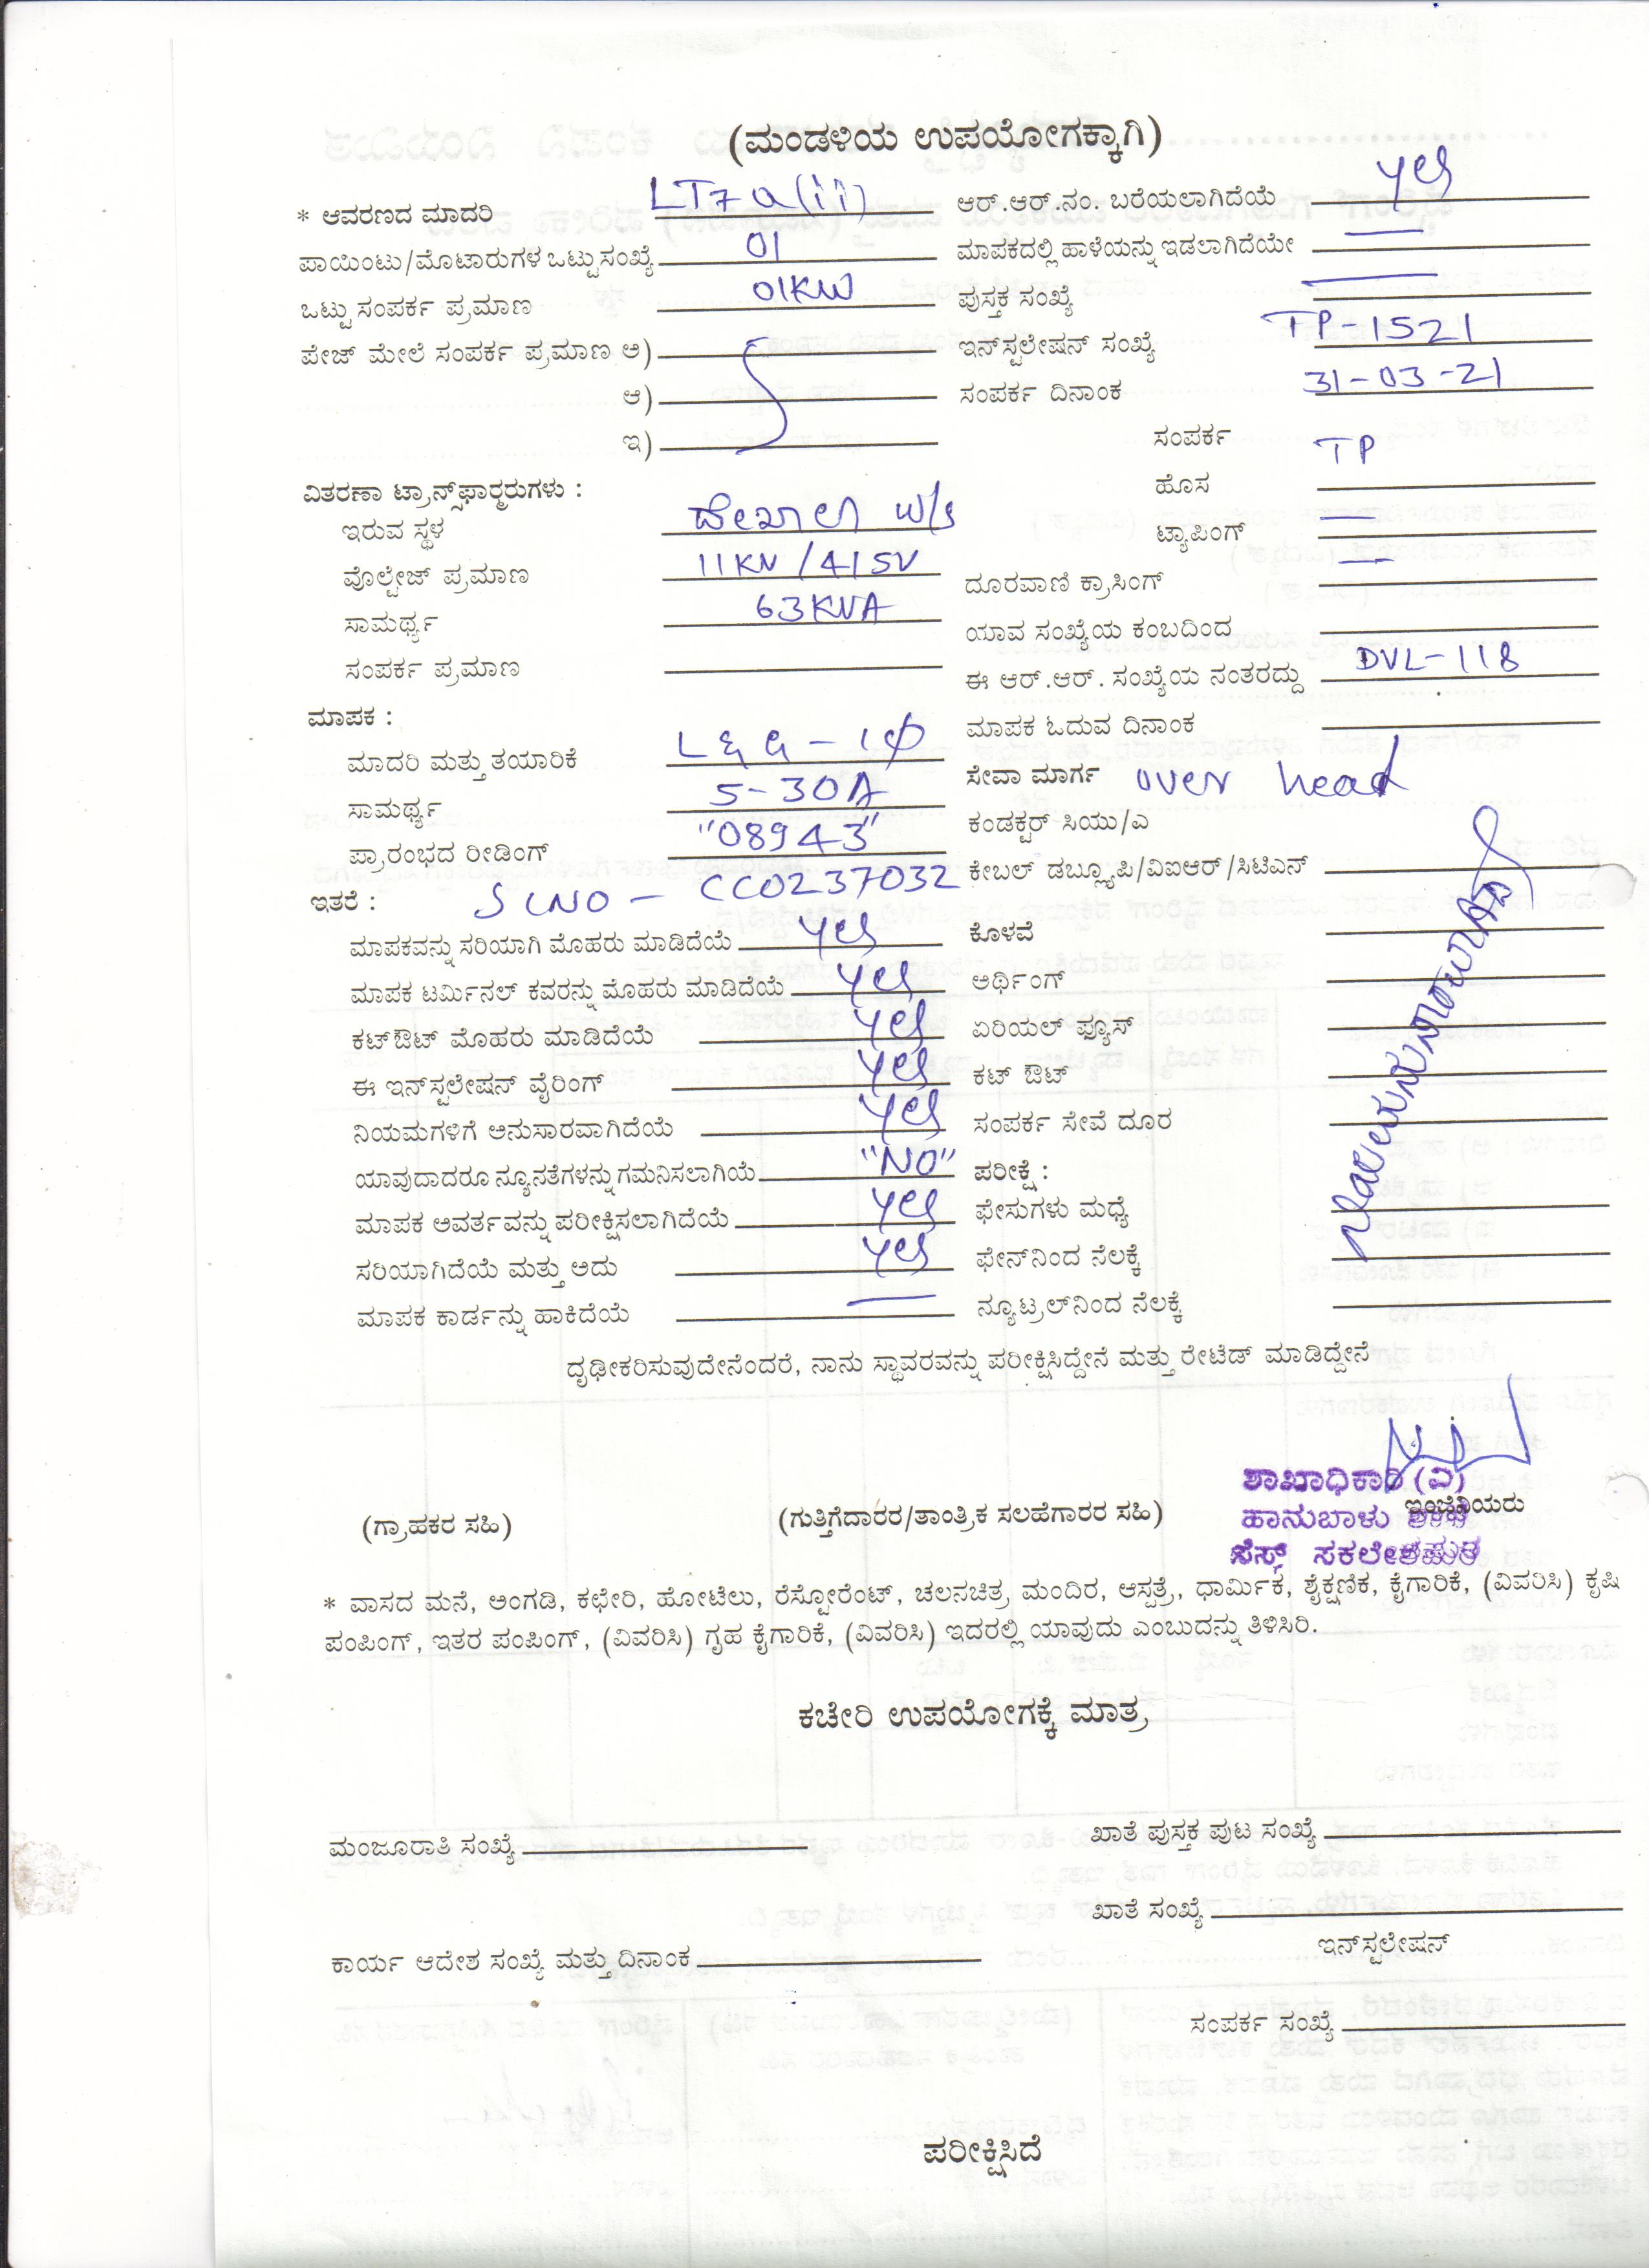 (ಮಂಡಳಿಯ ಉಪಯೋಗಕ್ಕಾಗಿ)
* ಆವರಣದ ಮಾದರಿ LT7a(ii)
ಪಾಯಿಂಟು/ಮೊಟಾರುಗಳ ಒಟ್ಟು ಸಂಖ್ಯೆ 01
ಒಟ್ಟು ಸಂಪರ್ಕ ಪ್ರಮಾಣ 01KW
ಪೇಜ್ ಮೇಲೆ ಸಂಪರ್ಕ ಪ್ರಮಾಣ ಅ)
ಆ)
ಇ)
ವಿತರಣಾ ಟ್ರಾನ್ಸ್‌ಫಾರ್‍ಮರುಗಳು :
ಇರುವ ಸ್ಥಳ W/S
ವೊಲ್ಟೇಜ್ ಪ್ರಮಾಣ 11KV/415V
ಸಾಮರ್ಥ್ಯ 63KVA
ಸಂಪರ್ಕ ಪ್ರಮಾಣ
ಮಾಪಕ :
ಮಾದರಿ ಮತ್ತು ತಯಾರಿಕೆ L&G - 1Φ
ಸಾಮರ್ಥ್ಯ 5-30A
ಪ್ರಾರಂಭದ ರೀಡಿಂಗ್ "08943"
ಇತರೆ : SLNO - CC0237032
ಮಾಪಕವನ್ನು ಸರಿಯಾಗಿ ಮೊಹರು ಮಾಡಿದೆಯೆ yes
ಮಾಪಕ ಟರ್ಮಿನಲ್ ಕವರನ್ನು ಮೊಹರು ಮಾಡಿದೆಯೆ yes
ಕಟ್‌ಔಟ್ ಮೊಹರು ಮಾಡಿದೆಯೆ yes
ಈ ಇನ್‌ಸ್ಟಲೇಷನ್ ವೈರಿಂಗ್ yes
ನಿಯಮಗಳಿಗೆ ಅನುಸಾರವಾಗಿದೆಯೆ yes
ಯಾವುದಾದರೂ ನ್ಯೂನತೆಗಳನ್ನು ಗಮನಿಸಲಾಗಿಯೆ "NO"
ಮಾಪಕ ಅವರ್ತವನ್ನು ಪರೀಕ್ಷಿಸಲಾಗಿದೆಯೆ yes
ಸರಿಯಾಗಿದೆಯೆ ಮತ್ತು ಅದು yes
ಮಾಪಕ ಕಾರ್ಡನ್ನು ಹಾಕಿದೆಯೆ —
ಆರ್.ಆರ್.ನಂ. ಬರೆಯಲಾಗಿದೆಯೆ yes
ಮಾಪಕದಲ್ಲಿ ಹಾಳೆಯನ್ನು ಇಡಲಾಗಿದೆಯೇ —
ಪುಸ್ತಕ ಸಂಖ್ಯೆ —
ಇನ್‌ಸ್ಟಲೇಷನ್ ಸಂಖ್ಯೆ TP-1521
ಸಂಪರ್ಕ ದಿನಾಂಕ 31-03-21
ಸಂಪರ್ಕ
ಹೊಸ TP
ಟ್ಯಾಪಿಂಗ್ —
ದೂರವಾಣಿ ಕ್ರಾಸಿಂಗ್ —
ಯಾವ ಸಂಖ್ಯೆಯ ಕಂಬದಿಂದ
ಈ ಆರ್.ಆರ್. ಸಂಖ್ಯೆಯ ನಂತರದ್ದು DVL-118
ಮಾಪಕ ಓದುವ ದಿನಾಂಕ
ಸೇವಾ ಮಾರ್ಗ over head
ಕಂಡಕ್ಟರ್ ಸಿಯು/ಎ
ಕೇಬಲ್ ಡಬ್ಲ್ಯೂಪಿ/ವಿಐಆರ್/ಸಿಟಿಎನ್
ಕೊಳವೆ
ಅರ್ಥಿಂಗ್
ಏರಿಯಲ್ ಫ್ಯೂಸ್
ಕಟ್ ಔಟ್
ಸಂಪರ್ಕ ಸೇವೆ ದೂರ
ಪರೀಕ್ಷೆ :
ಫೇಸುಗಳು ಮಧ್ಯೆ
ಫೇನ್‌ನಿಂದ ನೆಲಕ್ಕೆ
ನ್ಯೂಟ್ರಲ್‌ನಿಂದ ನೆಲಕ್ಕೆ
ದೃಢೀಕರಿಸುವುದೇನೆಂದರೆ, ನಾನು ಸ್ಥಾವರವನ್ನು ಪರೀಕ್ಷಿಸಿದ್ದೇನೆ ಮತ್ತು ರೇಟೆಡ್ ಮಾಡಿದ್ದೇನೆ
(ಗ್ರಾಹಕರ ಸಹಿ) (ಗುತ್ತಿಗೆದಾರರ/ತಾಂತ್ರಿಕ ಸಲಹೆಗಾರರ ಸಹಿ) ಇಂಜಿನಿಯರು
ಶಾಖಾಧಿಕಾರಿ (ವಿ)
ಹಾನುಬಾಳು ಶಾಖೆ
ಸೆಸ್ಕ್ ಸಕಲೇಶಪುರ
* ವಾಸದ ಮನೆ, ಅಂಗಡಿ, ಕಛೇರಿ, ಹೋಟೆಲು, ರೆಸ್ಟೋರೆಂಟ್, ಚಲನಚಿತ್ರ ಮಂದಿರ, ಆಸ್ಪತ್ರೆ, ಧಾರ್ಮಿಕ, ಶೈಕ್ಷಣಿಕ, ಕೈಗಾರಿಕೆ, (ವಿವರಿಸಿ) ಕೃಷಿ
ಪಂಪಿಂಗ್, ಇತರ ಪಂಪಿಂಗ್, (ವಿವರಿಸಿ) ಗೃಹ ಕೈಗಾರಿಕೆ, (ವಿವರಿಸಿ) ಇದರಲ್ಲಿ ಯಾವುದು ಎಂಬುದನ್ನು ತಿಳಿಸಿರಿ.
ಕಚೇರಿ ಉಪಯೋಗಕ್ಕೆ ಮಾತ್ರ
ಮಂಜೂರಾತಿ ಸಂಖ್ಯೆ ಖಾತೆ ಪುಸ್ತಕ ಪುಟ ಸಂಖ್ಯೆ
ಖಾತೆ ಸಂಖ್ಯೆ
ಕಾರ್ಯ ಆದೇಶ ಸಂಖ್ಯೆ ಮತ್ತು ದಿನಾಂಕ ಇನ್‌ಸ್ಟಲೇಷನ್
ಸಂಪರ್ಕ ಸಂಖ್ಯೆ
ಪರೀಕ್ಷಿಸಿದೆ